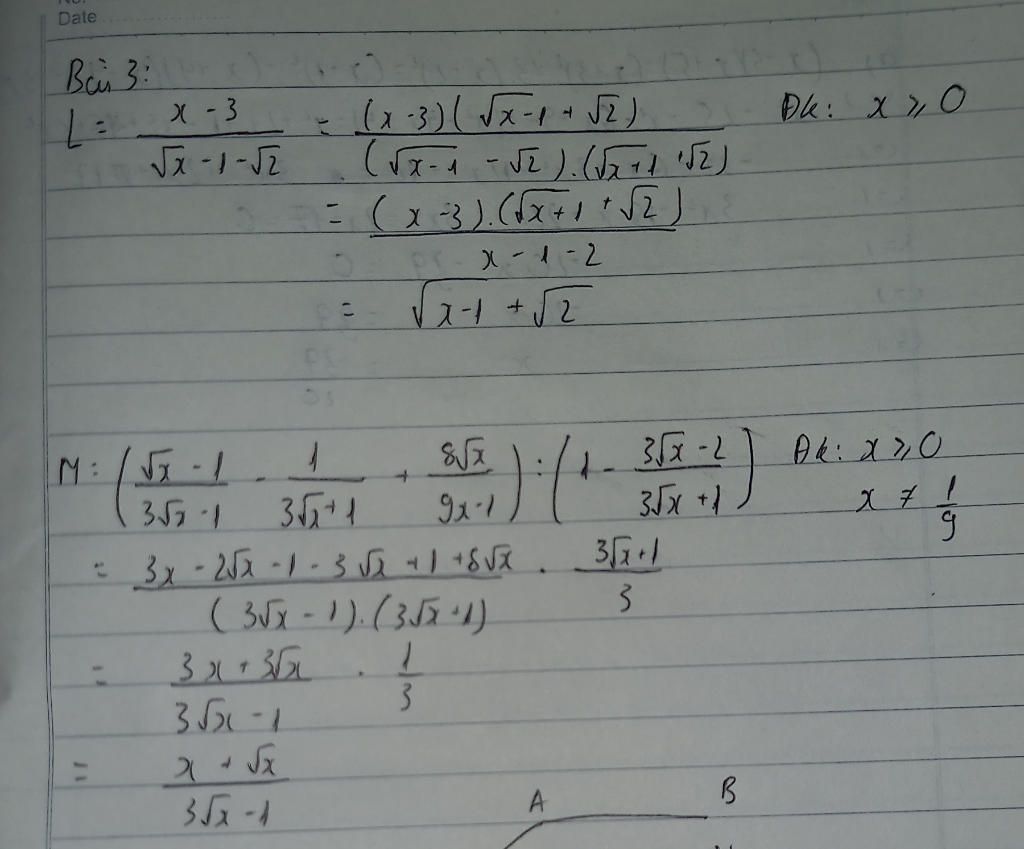 No.
Date
Bài 3:
L = \frac{x - 3}{\sqrt{x} - 1 - \sqrt{2}} = \frac{(x - 3)(\sqrt{x - 1} + \sqrt{2})}{(\sqrt{x - 1} - \sqrt{2}).(\sqrt{x + 1} + \sqrt{2})} Đk: x ⩾ 0
= \frac{(x - 3).(\sqrt{x + 1} + \sqrt{2})}{x - 1 - 2}
= \sqrt{x - 1} + \sqrt{2}
M: \left(\frac{\sqrt{x} - 1}{3\sqrt{x} - 1} - \frac{1}{3\sqrt{x} + 1} + \frac{8\sqrt{x}}{9x - 1}\right) : \left(1 - \frac{3\sqrt{x} - 2}{3\sqrt{x} + 1}\right) Đk: x ⩾ 0
x ≠ \frac{1}{9}
= \frac{3x - 2\sqrt{x} - 1 - 3\sqrt{x} + 1 + 8\sqrt{x}}{(3\sqrt{x} - 1).(3\sqrt{x} + 1)} . \frac{3\sqrt{x} + 1}{3}
= \frac{3x + 3\sqrt{x}}{3\sqrt{x} - 1} . \frac{1}{3}
= \frac{x + \sqrt{x}}{3\sqrt{x} - 1}
A B